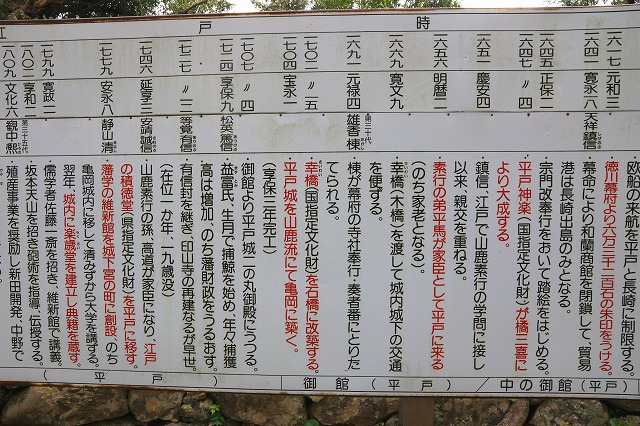 江戸時
一六一七 元和三
一六四一 寛永八 天祥鎮信
一六四五 正保二
一六四七 〃四
一六五一 慶安四
一六五六 明暦二
一六六九 寛文九
一六九一 元禄四 第三十代 雄香棟
一七〇二 〃一五
一七〇四 宝永一
一七〇七 〃四
一七一四 享保九 松英篤信
一七二七 〃一二 等覚有信
一七四六 延享三 安靖誠信
一七七九 安永八 静山清
一七九九 寛政二
一八〇二 享和二
一八〇九 文化六 第三十五代 観中熈
欧船の来航を平戸と長崎に制限する。
徳川幕府より六万三千二百石の朱印をうける。
幕命により和蘭商館を閉鎖して、貿易
港は長崎出島のみとなる。
宗門改奉行をおいて踏絵をはじめる。
平戸神楽(国指定文化財)が橘三喜に
より大成する。
鎮信、江戸で山鹿素行の学問に接し
以来、親交を重ねる。
素行の弟平馬が家臣として平戸に来る
(のち家老となる)。
幸橋(木橋)を渡して城内城下の交通
を便する。
棟が幕府の寺社奉行・奏者番にとりた
てられる。
幸橋(国指定文化財)を石橋に改築する。
平戸城を山鹿流にて亀岡に築く。
(享保三年完工)
御館より平戸城二の丸御殿にうつる。
益冨氏、生月で捕鯨を始め、年々捕獲
高は増加、のち藩財政をうるおす。
有信封を継ぎ、印山寺の再建なるが早世。
(在位一か年、一九歳没)
山鹿素行の孫、高道が家臣になり、江戸
の積徳堂(県指定文化財)を平戸に移す。
藩学の維新館を城下宮の町に創設、のち
亀岡城内に移して清みずから大学を講ずる。
翌年、城内に楽歳堂を建立し典籍を蔵す。
儒学者佐藤一斎を招き、維新館で講義。
坂本天山を招き砲術を指導、伝授する。
殖産事業を奨励し新田開発、中野で
(平戸)
御館(平戸)/中の御館(平戸)